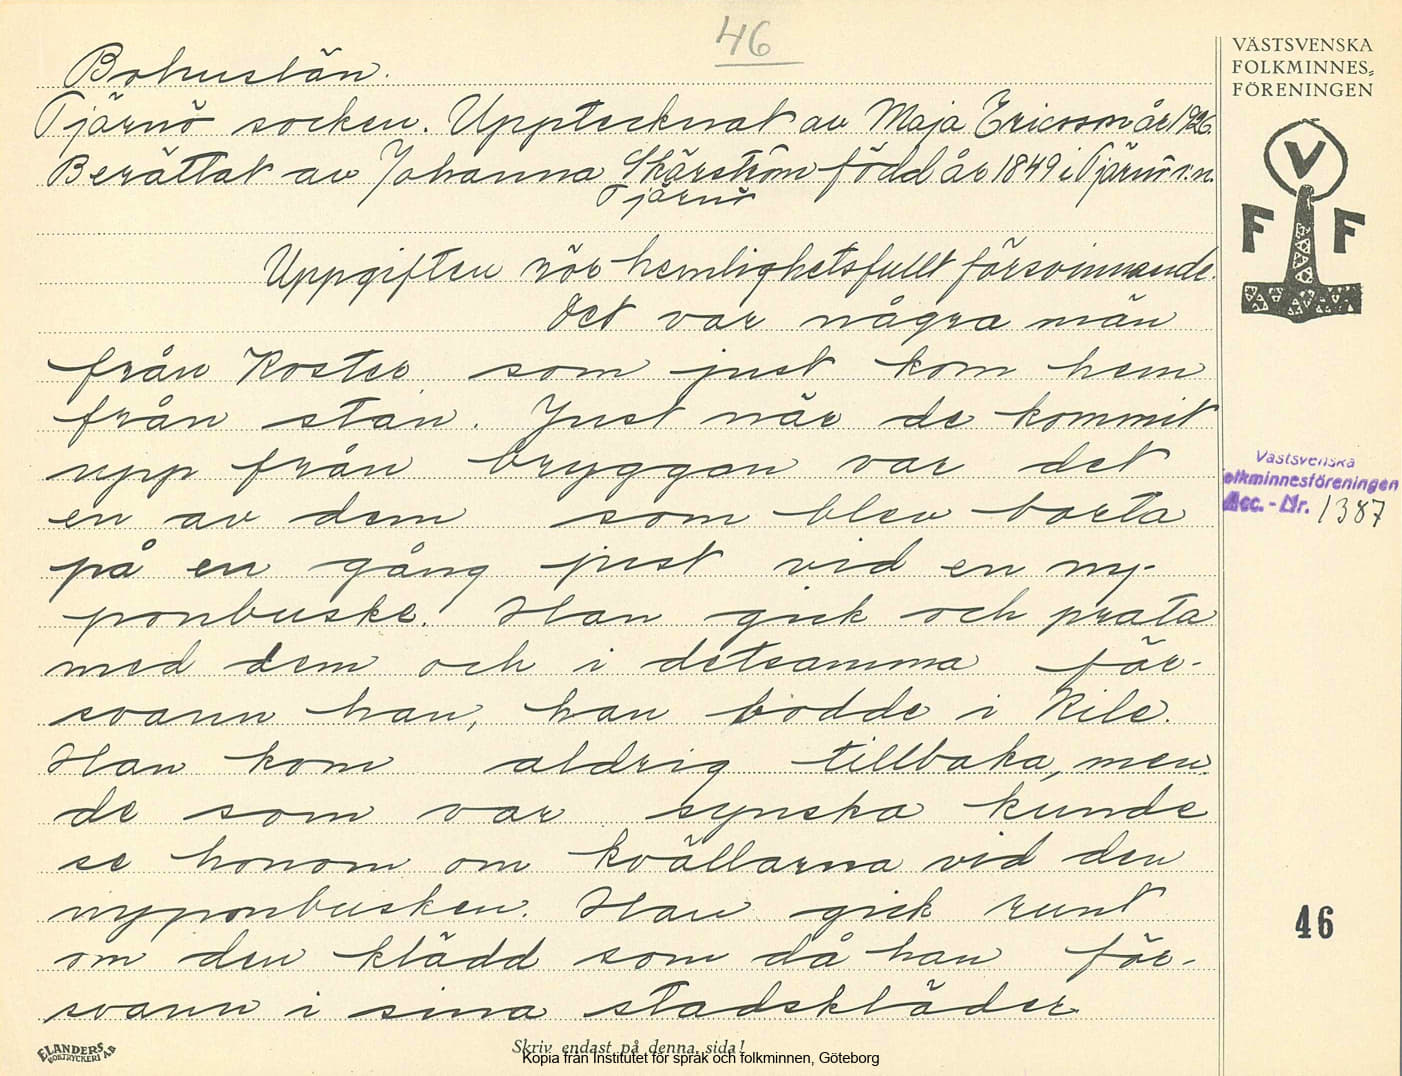 46
Bohuslän.
Tjärnö socken. Upptecknat av Maja Ericsson år 1926.
Berättat av Johanna Skärström född år 1849 i Tjärnö s:n.
Tjärnö
Uppgiften rör hemlighetsfullt försvinnande.
Det var några män
från Koster som just kom hem
från stan. Just när de kommit
upp från bryggan var det
en av dem som blev borta
på en gång just vid en ny-
ponbuske. Han gick och prata
med dem och i detsamma för-
svann han, han bodde i Kile.
Han kom aldrig tillbaka, men
de som var synska kunde
se honom om kvällarna vid den
nyponbusken. Han gick runt
om den klädd som då han för-
svann i sina stadskläder
VÄSTSVENSKA
FOLKMINNES-
FÖRENINGEN
V
F F
Västsvenska
Folkminnesföreningen
Acc. - Nr. 1387
46
ELANDERS
BOKTRYCKERI A.B
Skriv endast på denna sida!
Kopia från Institutet för språk och folkminnen, Göteborg